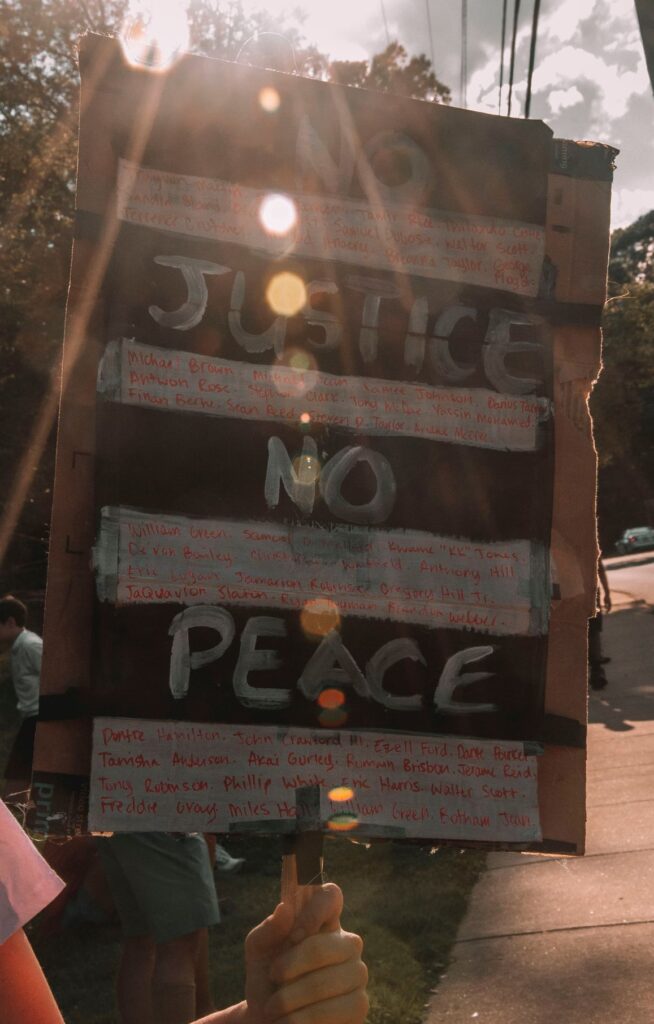 NO
Tamir Rice.
Sandra Bland. Samuel Dubose. Walter Scott.
Terrence Crutcher. Breonna Taylor. George
Floyd.
JUSTICE
Michael Brown. Jamee Johnson.
Antwon Rose. Stephon Clark. Tony McDade. Yassin Mohamed.
Sean Reed. Steven D. Taylor.
NO
William Green. Samuel Kwame "KK" Jones.
De'von Bailey. Christopher Whitfield. Anthony Hill
Eric Logan. Jamarion Robinson. Gregory Hill Jr.
JaQuavion Slaton. Ryan Twyman. Brandon Webber.
PEACE
Dontre Hamilton. John Crawford III. Ezell Ford. Dante Parker.
Tanisha Anderson. Akai Gurley. Rumain Brisbon. Jerame Reid.
Tony Robinson. Phillip White. Eric Harris. Walter Scott.
Freddie Gray. Miles Hall. William Green. Botham Jean.